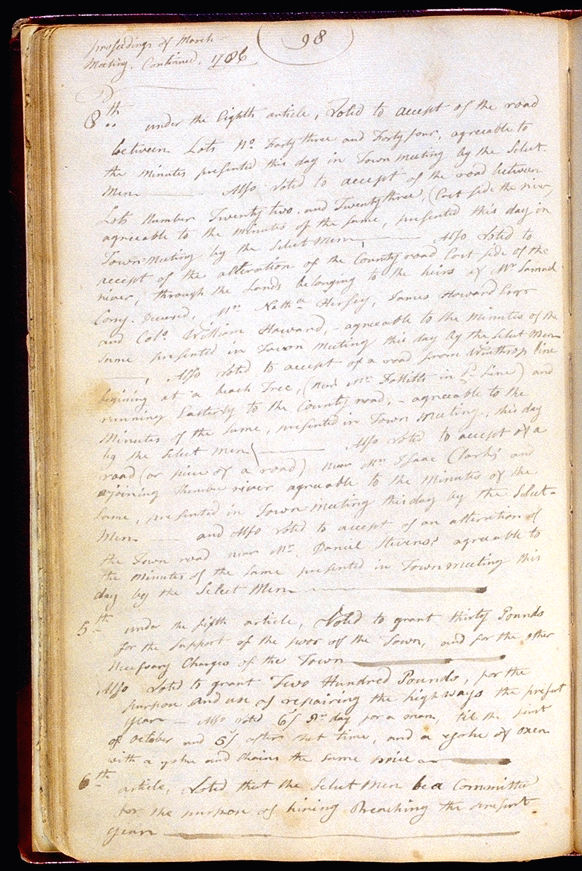 proseedings of March
98
Meeting, Continued, 1786
8th under the Eighth article, Voted to accept of the road
between Lots No. Forty three and Forty four, agreeable to
the minutes presented this day in Town Meeting by the Select
Men. Also Voted to accept of the road between
Lots Number Twenty two, and Twenty three, (East side the river,
agreeable to the minutes of the same, presented this day in
Town meeting by the Select Men, Also Voted to
accept of the alteration of the County road East side of the
river, through the Lands belonging to the heirs of Mr Samuel
Cony, Deceasd, Mr. Nathl Hersey, James Howard Esqr
and Colo. William Howard, agreeable to the Minutes of the
same presented in Town Meeting this day by the Select Men
Also Voted to accept of a road from Winthrop line
begining at a beach Tree, (near Mr. Follitts in sd Line) and
runing Easterly to the County road, - agreeable to the
Minutes of the same, presented in Town Meeting, this day
by the Select Men Also voted to accept of a
road (or piece of a road) near Mr Isaac Clarks and
ajoining river agreeable to the Minutes of the
same, presented in Town meeting this day by the Select
Men. and Also Voted to accept of an alteration of
the Town road near Mr. Daniel Stevens's agreeable to
the Minutes of the same presented in Town meeting this
day by the Select Men
5th under the fifth article, Voted to grant thirty Pounds
for the support of the poor of the Town, and for the other
Necessary Charges of the Town
Also Voted to grant Two Hundred Pounds, for the
purpose and use of repairing the highways the present
year Also voted 6/ pr day for a man, til the first
of October and 5/ after that time, and a yoke of oxen
with a yoke and chains the same price
6th article, Voted that the Select Men be a Committee
for the purpose of hiring Preaching the present
year